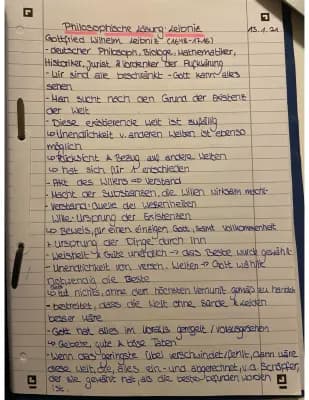 Philosophische Lösung Leibniz
13.1.21
Gottfried Wilhelm Leibniz (1646-1716)
- deutscher Philosoph, Biologe, Mathematiker,
Historiker, Jurist & Vordenker der Aufklärung
- Wir sind alle beschränkt - Gott kann alles
sehen
- Man sucht nach den Grund der Existenz
der Welt
- Diese existierende Welt ist zufällig
↳ Unendlichkeit v. anderen Welten ist ebenso
möglich
↳ Rücksicht & Bezug auf andere Welten
↳ hat sich für 1 entschieden
- Akt des Willens ⇒ Verstand
- Macht der Substanzen, die Willen wirksam macht
- Verstand - Quelle der Wesenheiten
Wille - Ursprung der Existenzen
↳ Beweis, für einen einzigen Gott, samt Vollkommenheit
& Ursprung der Dinge durch ihn
- Weisheit & Güte unendlich → das Beste wurde gewählt
- Unendlichkeit von versch. Welten → Gott wählte
notwendig die Beste
↳ tut nichts, ohne der höchsten Vernunft gemäß zu handeln
- bestreitet, dass die Welt ohne Sünde & Leiden
besser wäre
- Gott hat alles im Voraus geregelt / vorausgesehen
↳ Gebete, gute & böse Taten
- Wenn das geringste Übel verschwindet/fehlt, dann wäre
diese Welt, die, alles ein- und abgerechnet, v.d. Schöpfer,
der sie gewählt hat, als die beste befunden worden
ist.